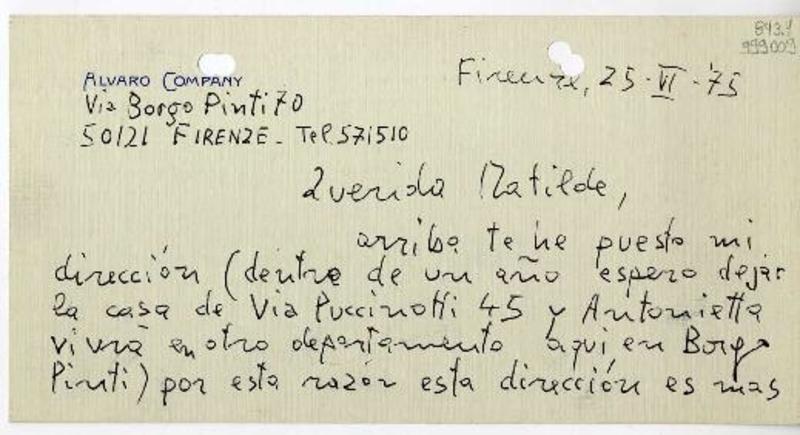 843.1
999009
ALVARO COMPANY
Firenze, 25-VI-'75
Via Borgo Pinti 70
50121 FIRENZE - Tel. 571510
Querida Matilde,
arriba te he puesto mi
dirección (dentro de un año espero dejar
la casa de Via Puccinotti 45 y Antonietta
vivrà en otro departamento aqui en Borgo
Pinti) por esta razón esta dirección es mas